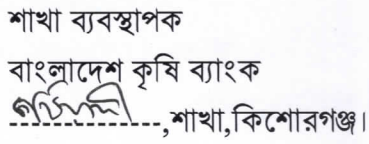 শাখা ব্যবস্থাপক
বাংলাদেশ কৃষি ব্যাংক
----------------,শাখা,কিশোরগঞ্জ।